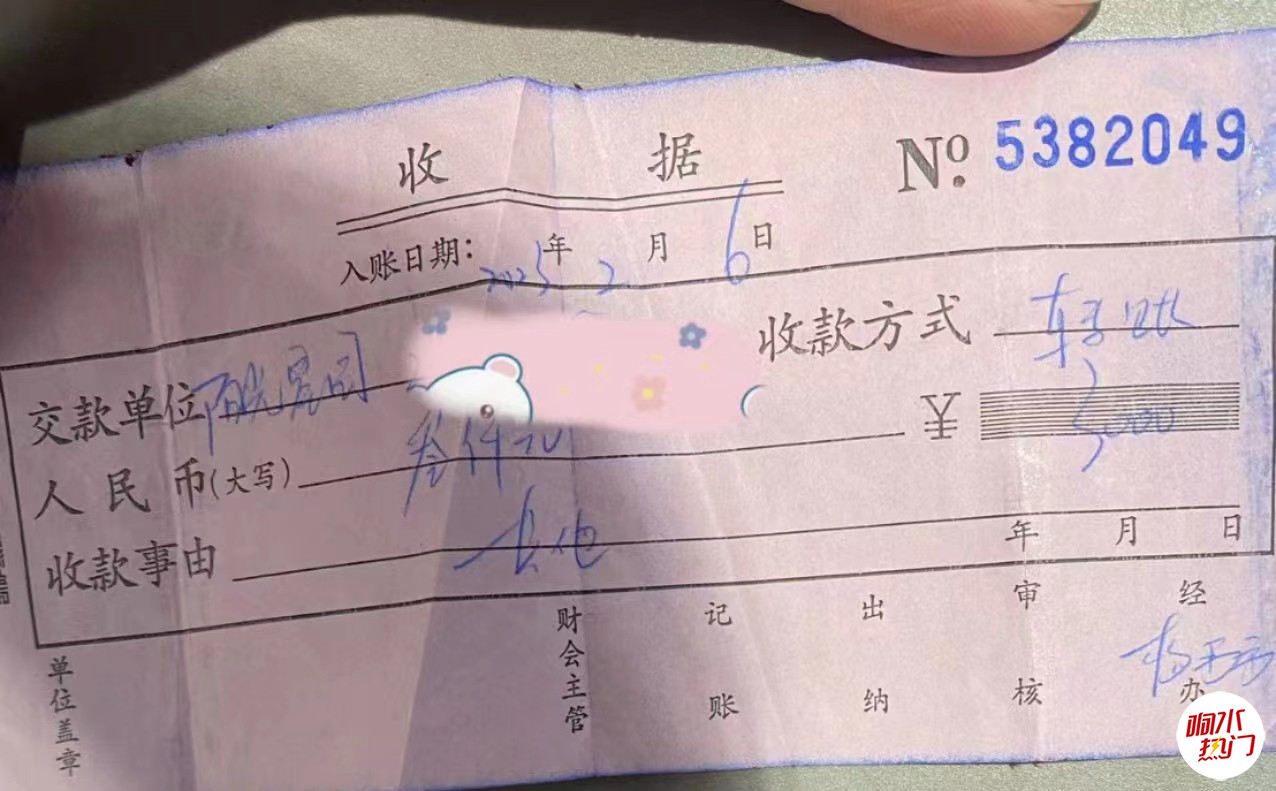 收 据
No. 5382049
入账日期：2025年2月6日
收款方式 转账
交款单位
人民币(大写) 叁仟元 ¥ 3000
收款事由 其他
年 月 日
单位盖章 财会主管 记账 出纳 审核 经办
响水热门